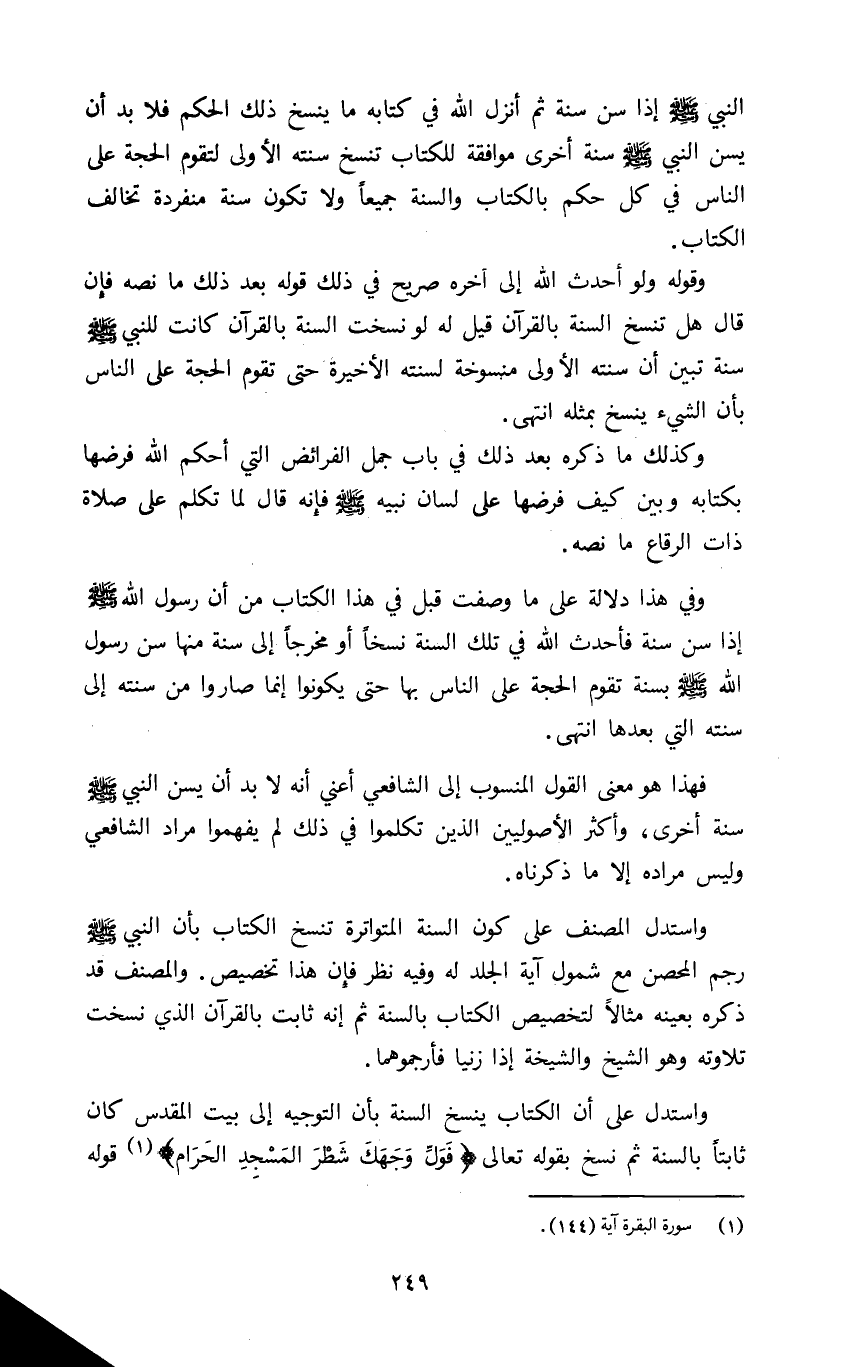 النبي ﷺ إذا سن سنة ثم أنزل الله في كتابه ما ينسخ ذلك الحكم فلا بد أن
يسن النبي ﷺ سنة أخرى موافقة للكتاب تنسخ سنته الأولى لتقوم الحجة على
الناس في كل حكم بالكتاب والسنة جميعاً ولا تكون سنة منفردة تخالف
الكتاب.
وقوله ولو أحدث الله إلى آخره صريح في ذلك قوله بعد ذلك ما نصه فإن
قال هل تنسخ السنة بالقرآن قيل له لو نسخت السنة بالقرآن كانت للنبي ﷺ
سنة تبين أن سنته الأولى منسوخة لسنته الأخيرة حتى تقوم الحجة على الناس
بأن الشيء ينسخ بمثله انتهى.
وكذلك ما ذكره بعد ذلك في باب جمل الفرائض التي أحكم الله فرضها
بكتابه وبين كيف فرضها على لسان نبيه ﷺ فإنه قال لما تكلم على صلاة
ذات الرقاع ما نصه.
وفي هذا دلالة على ما وصفت قبل في هذا الكتاب من أن رسول الله ﷺ
إذا سن سنة فأحدث الله في تلك السنة نسخاً أو مخرجاً إلى سنة منها سن رسول
الله ﷺ بسنة تقوم الحجة على الناس بها حتى يكونوا إنما صاروا من سنته إلى
سنته التي بعدها انتهى.
فهذا هو معنى القول المنسوب إلى الشافعي أعني أنه لا بد أن يسن النبي ﷺ
سنة أخرى، وأكثر الأصوليين الذين تكلموا في ذلك لم يفهموا مراد الشافعي
وليس مراده إلا ما ذكرناه.
واستدل المصنف على كون السنة المتواترة تنسخ الكتاب بأن النبي ﷺ
رجم المحصن مع شمول آية الجلد له وفيه نظر فإن هذا تخصيص. والمصنف قد
ذكره بعينه مثالاً لتخصيص الكتاب بالسنة ثم إنه ثابت بالقرآن الذي نسخت
تلاوته وهو الشيخ والشيخة إذا زنيا فأرجموهما.
واستدل على أن الكتاب ينسخ السنة بأن التوجيه إلى بيت المقدس كان
ثابتاً بالسنة ثم نسخ بقوله تعالى ﴿فَوَلِّ وَجَهَكَ شَطْرَ المَسْجِدِ الحَرَام﴾(١) قوله
(١) سورة البقرة آية (١٤٤).
٢٤٩